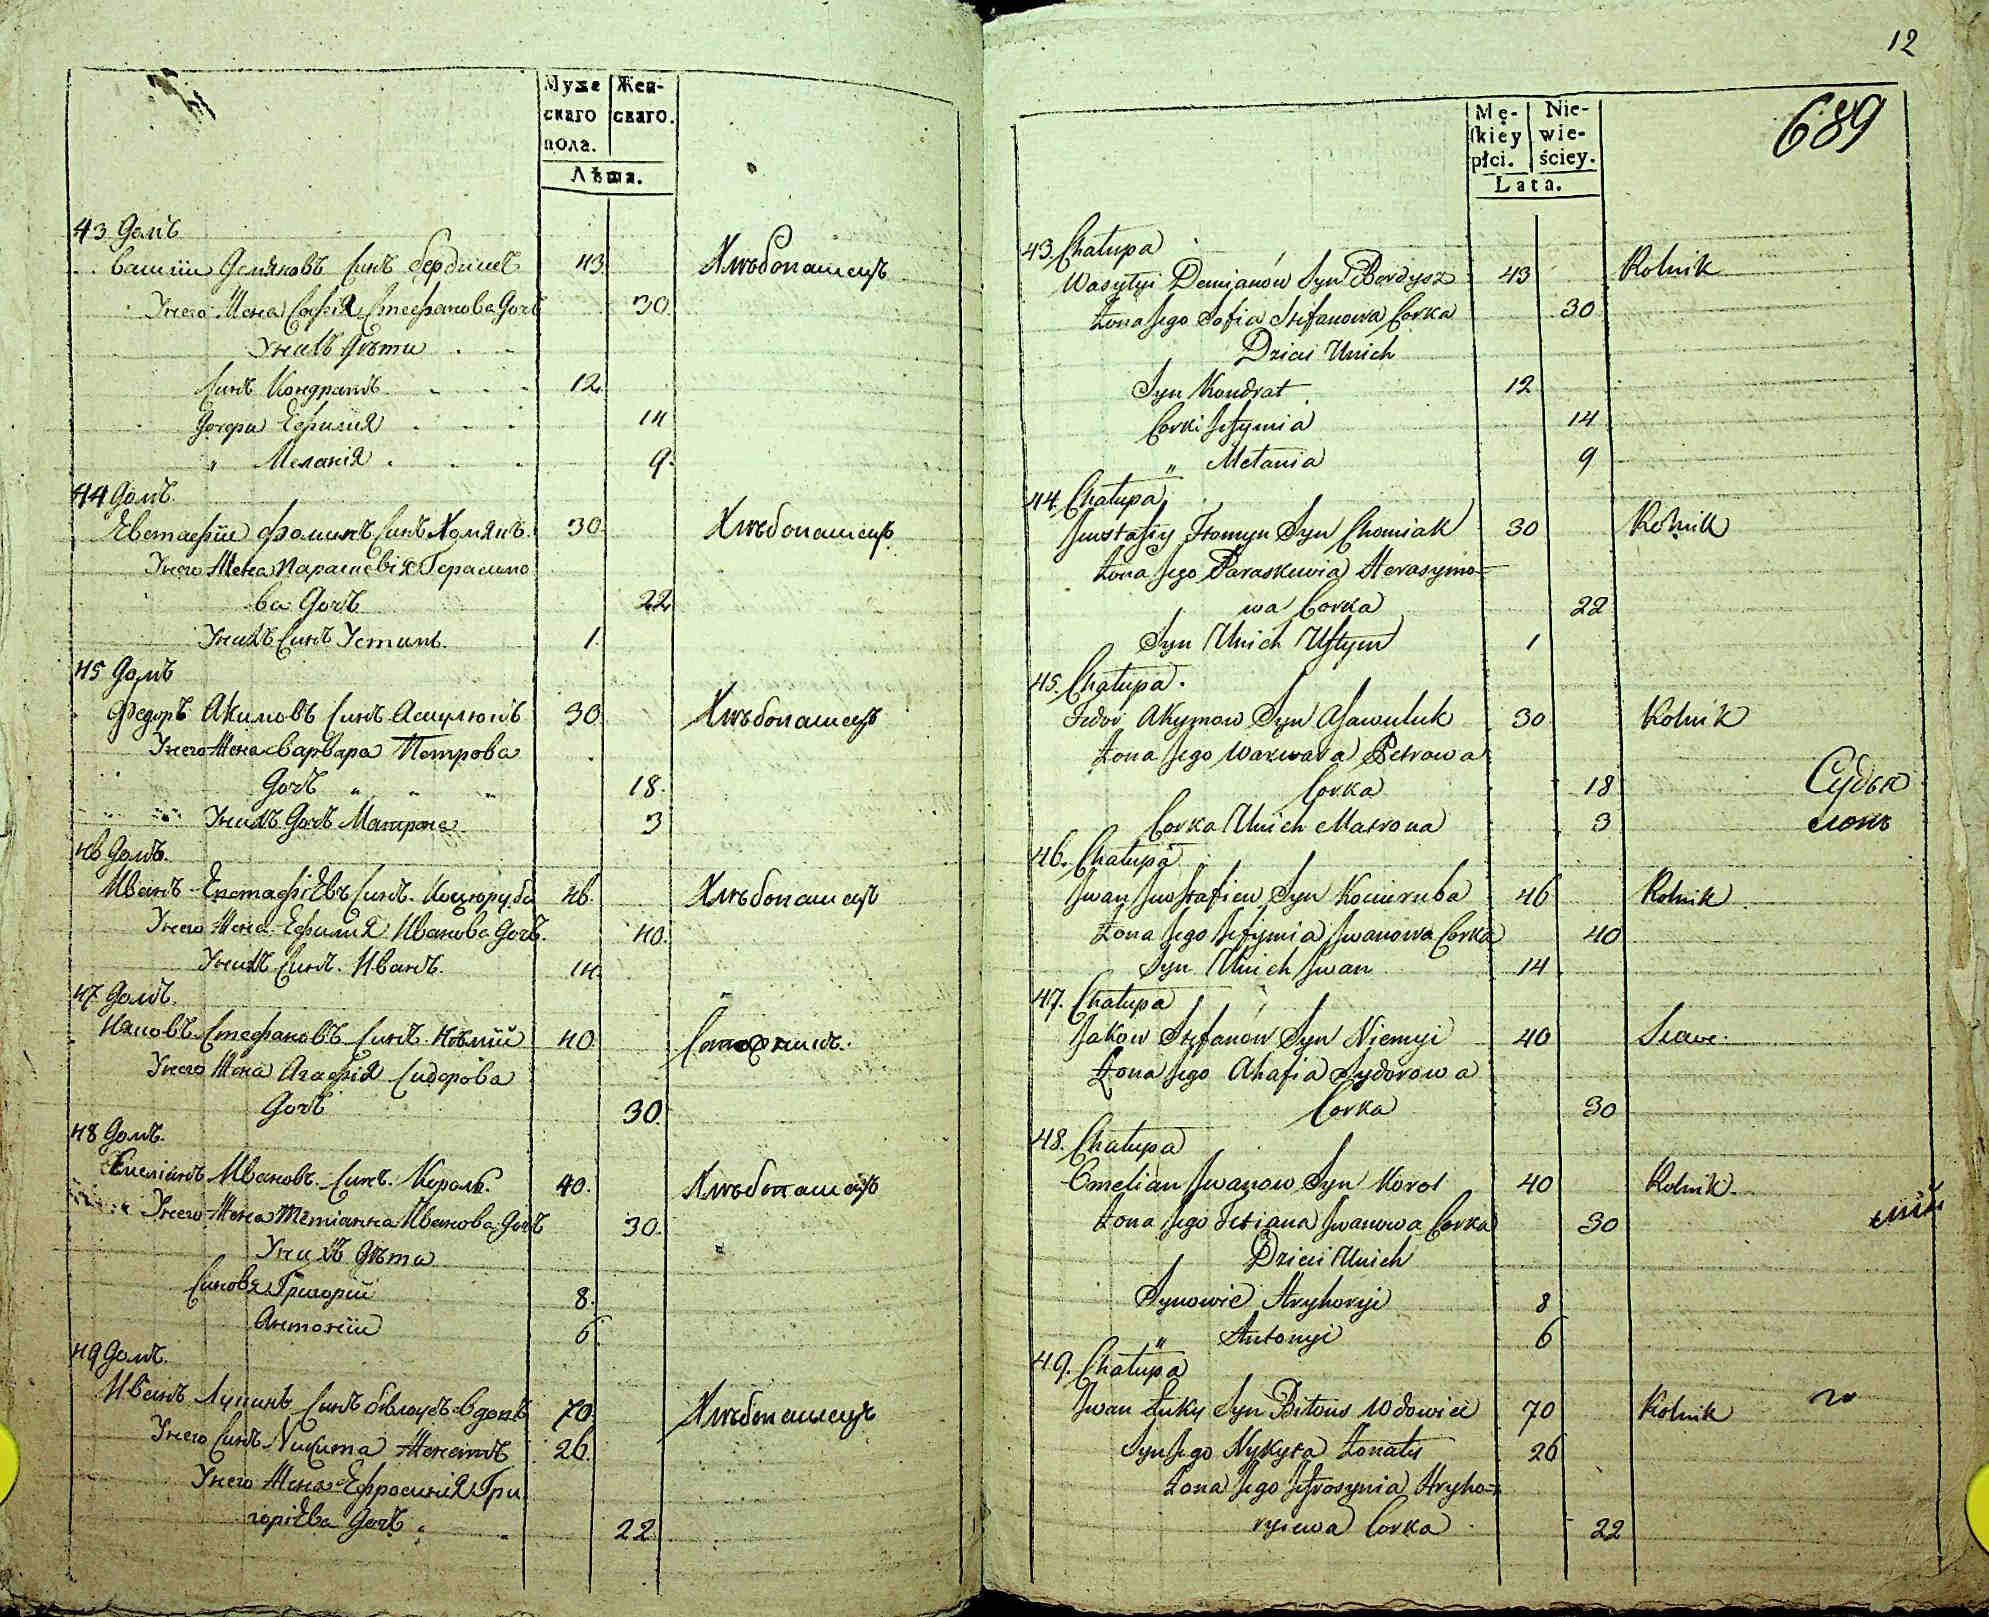 Муже
скаго
пола.
Жен-
скаго.
Лѣта.
43 Домъ
Василiй Демяновъ Синъ Бердишъ 43 Хлѣбопашецъ
Унего Жена Софiя Стефанова Дочь 30
Унихъ Дѣти
Синъ Кондратъ 12
Дочери Ефимия 14
" Меланiя 9
44 Домъ
Евстафiй Фоминъ Синъ Хомякъ 30 Хлѣбопашецъ
Унего Жена Параскевiя Герасимо
ва Дочь 22
Унихъ Синъ Устимъ 1
45 Домъ
Федоръ Акимовъ Синъ 30 Хлѣбопашецъ
Унего Жена Варвара Петрова
Дочь " " " 18
Унихъ Дочь Матрона 3
46 Домъ
Иванъ Евстафiевъ Синъ Коцюруба 46 Хлѣбопашецъ
Унего Жена Ефимия Иванова Дочь 40
Унихъ Синъ Иванъ 14
47 Домъ
Яковъ Стефановъ Синъ Нѣмий 40
Унего Жена Агафiя Сидорова
Дочь 30
48 Домъ
Емелiянъ Ивановъ Синъ Король 40 Хлѣбопашецъ
Унего Жена Тетiанна Иванова Дочь 30
Унихъ Дѣти
Синовя Григорий 8
Антонiй 6
49 Домъ
Иванъ Лукинъ Синъ Бѣлоусъ Вдовъ 70 Хлѣбопашецъ
Унего Синъ Никита Женатъ 26
Унего Жена Ефросиния Гри
горiева Дочь 22
12
689
Mę-
ſkiey
płci.
Nie-
wie-
ściey.
Lata.
43. Chałupa
Wasylyi Demianów Syn Berdysz 43 Rolnik
Żona Jego Sofia Stefanowa Corka 30
Dzieci Unich
Syn Kondrat 12
Corki Jefymia 14
" Mełania 9
44. Chałupa
Jewstafiy Homyn Syn Chomiak 30 Rolnik
Żona Jego Paraskewia Herasymo=
wa Corka 22
Syn Unich Ustym 1
45. Chałupa
Fedor Akymow Syn Asawuluk 30 Rolnik
Żona Jego Warwara Petrowa
Corka 18
Corka Unich Matrona 3
46. Chałupa
Jwan Jewstafiew Syn Kociuruba 46 Rolnik
Żona Jego Jefymia Jwanowa Corka 40
Syn Unich Jwan 14
47. Chałupa
Jakow Stefanów Syn Niemyi 40
Żona Jego Ahafia Sydorowa
Corka 30
48. Chałupa
Omelian Jwanow Syn Korol 40 Rolnik
Żona Jego Tetiana Jwanowa Corka 30
Dzieci Unich
Synowie Hryhoryi 8
" Antonyi 6
49. Chałupa
Jwan Łuky Syn Biłous Wdowiec 70 Rolnik
Syn Jego Nykyta Żonaty 26
Żona Jego Jefrosynia Hryho=
ryiewa Corka 22